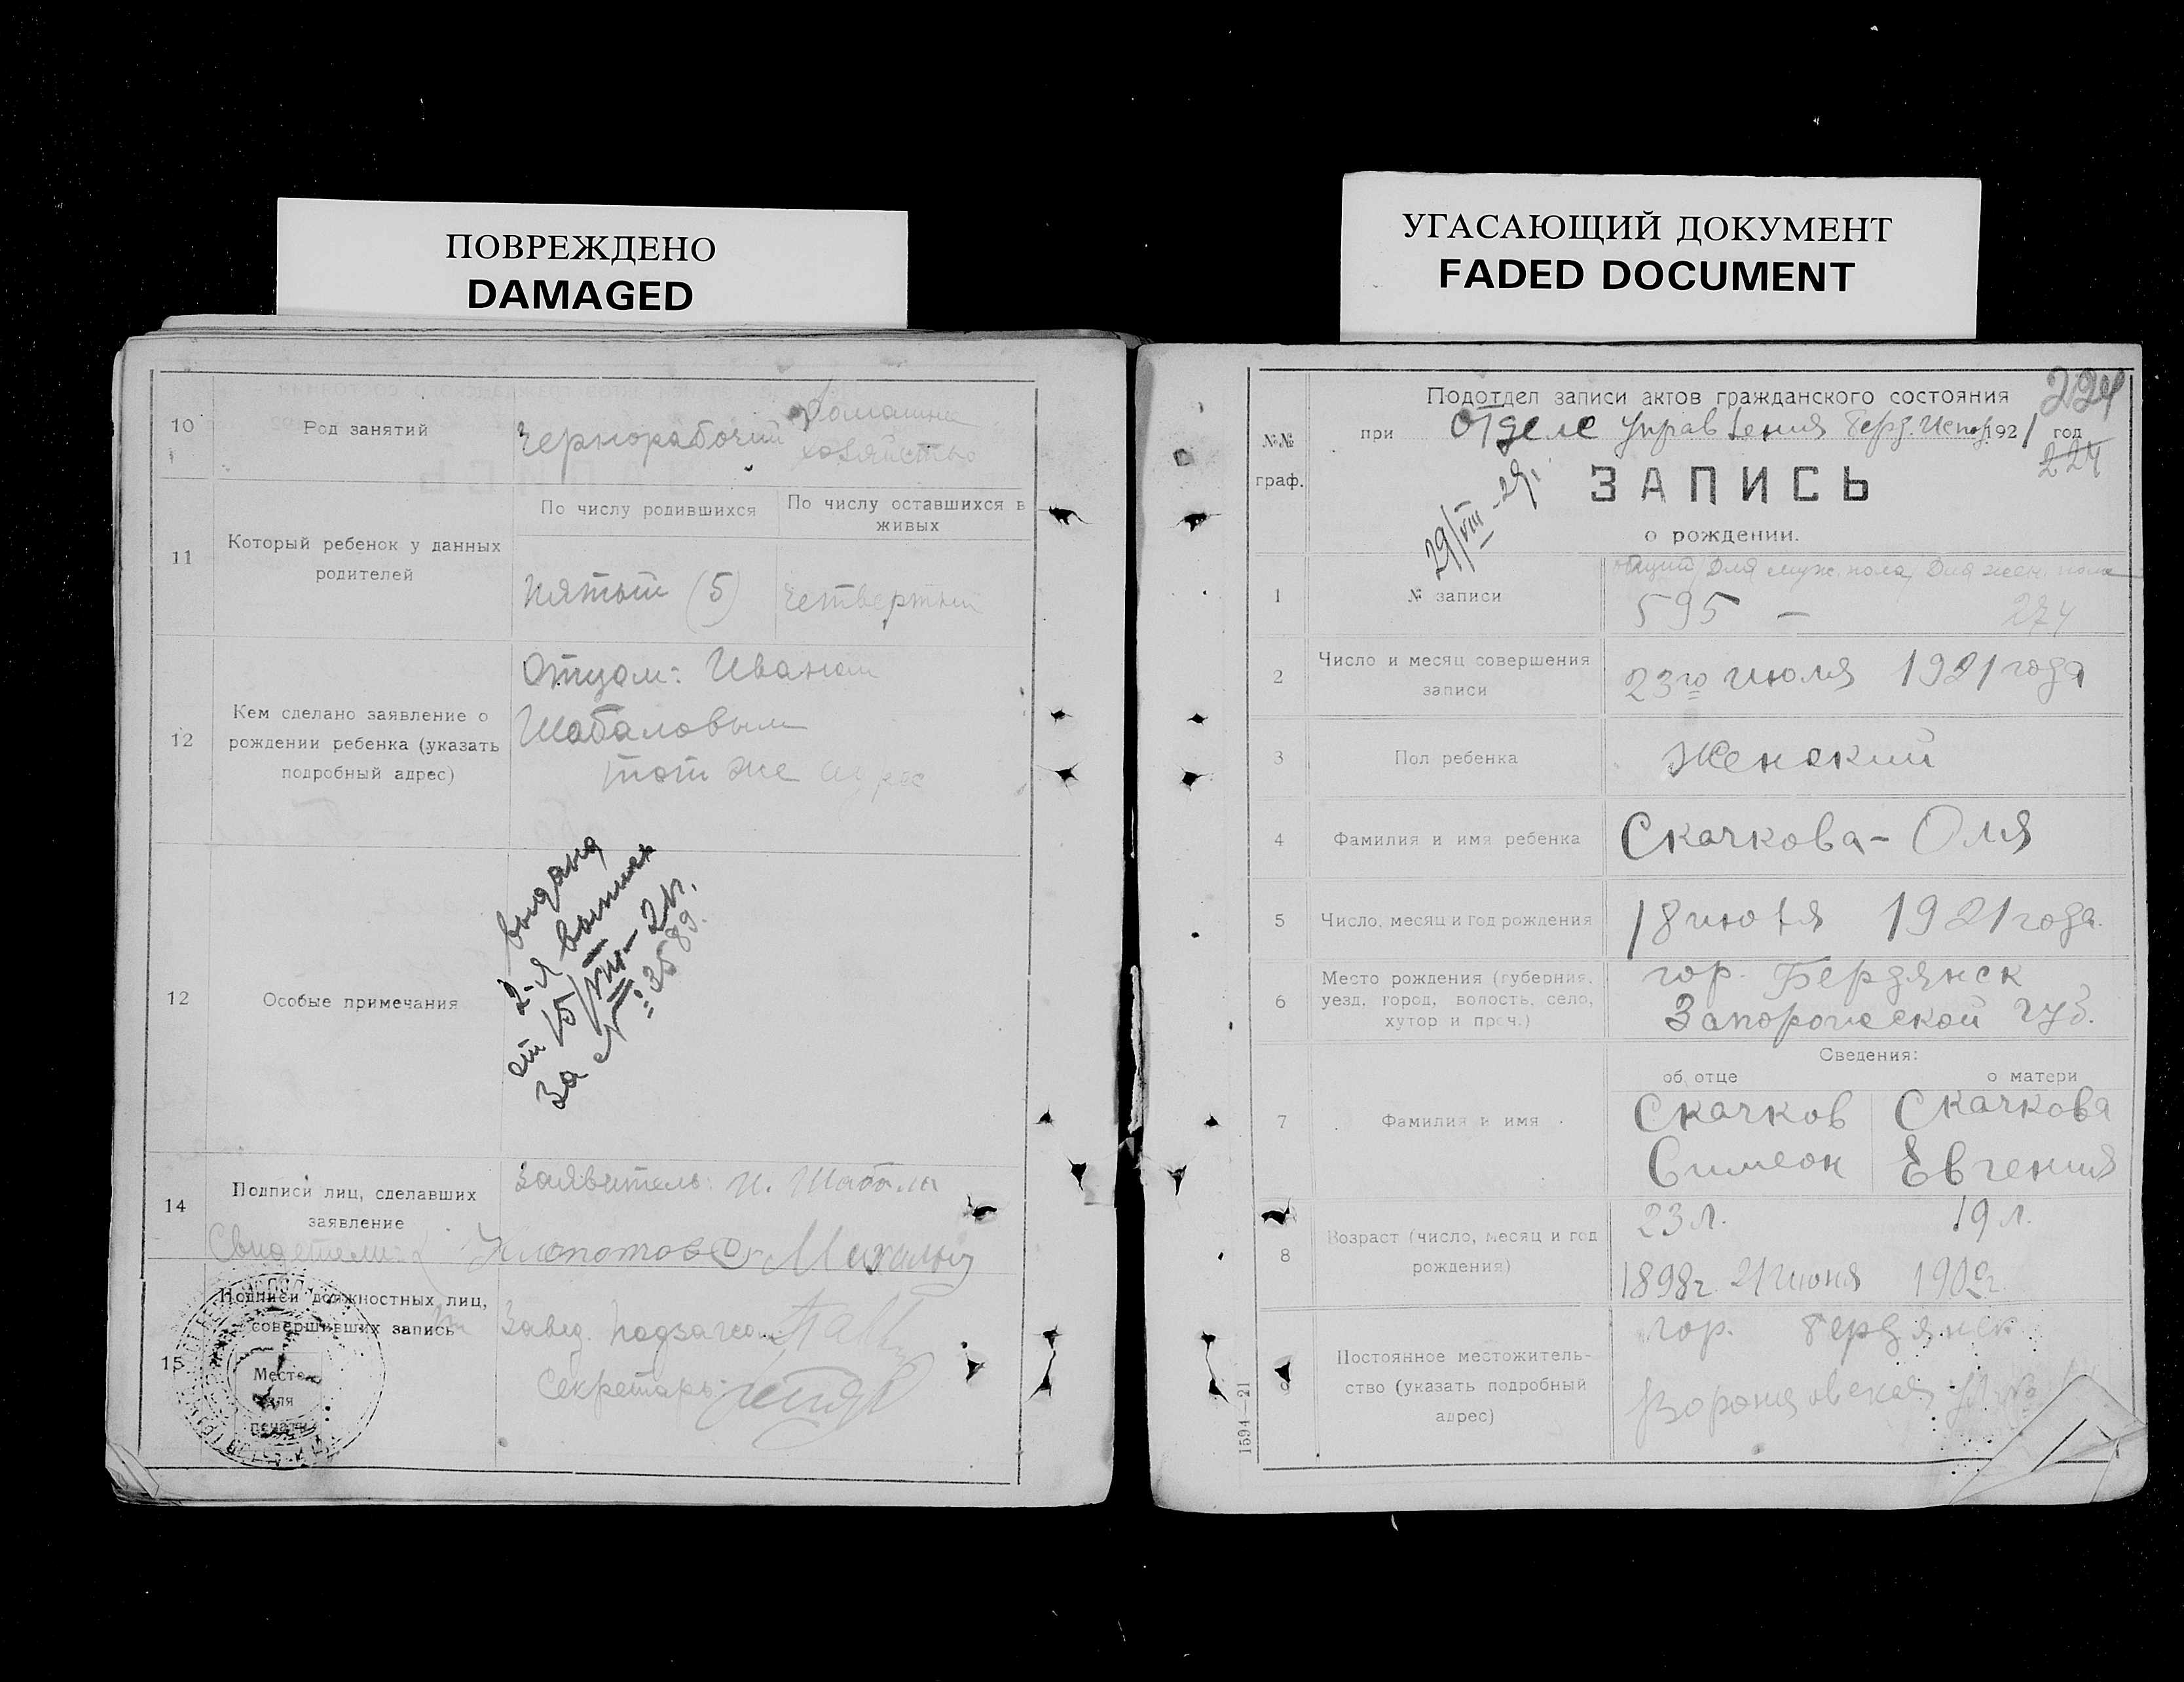 ПОВРЕЖДЕНО
DAMAGED
10
Род занятий
Чернорабочий
домашнее
хозяйство
11
Который ребенок у данных
родителей
По числу родившихся
По числу оставшихся в
живых
Пятый (5)
Четвертый
12
Кем сделано заявление о
рождении ребенка (указать
подробный адрес)
Отцом: Иваном
Шабаловым
тот же адрес
12
Особые примечания
выдана
2-я выпись
от 15/VIII-21г.
за № 3589.
14
Подписи лиц, сделавших
заявление
Заявитель: И. Шабала
Свидетели:
15
Подписи должностных лиц,
совершивших запись
Место
для
печати
Завед. подзагсом
Секретарь
УГАСАЮЩИЙ ДОКУМЕНТ
FADED DOCUMENT
№№
граф.
Подотдел записи актов гражданского состояния
224
при Отделе Управления Берд. Испол. 1921 год
224
29/VIII-21.
ЗАПИСЬ
о рождении.
1
№ записи
общий Для муж. пола Для жен. пола
595 — 274
2
Число и месяц совершения
записи
23го июля 1921 года
3
Пол ребенка
Женский
4
Фамилия и имя ребенка
Скачкова - Оля
5
Число, месяц и год рождения
18 июля 1921 года.
6
Место рождения (губерния,
уезд, город, волость, село,
хутор и проч.)
гор. Бердянск
Запорожской губ.
Сведения:
об отце
о матери
7
Фамилия и имя
Скачков
Симеон
Скачкова
Евгения
8
Возраст (число, месяц и год
рождения)
23 л.
19 л.
1898г. 21 июня
1902г.
9
Постоянное местожитель-
ство (указать подробный
адрес)
гор. Бердянск
Воронцовская
1594—21